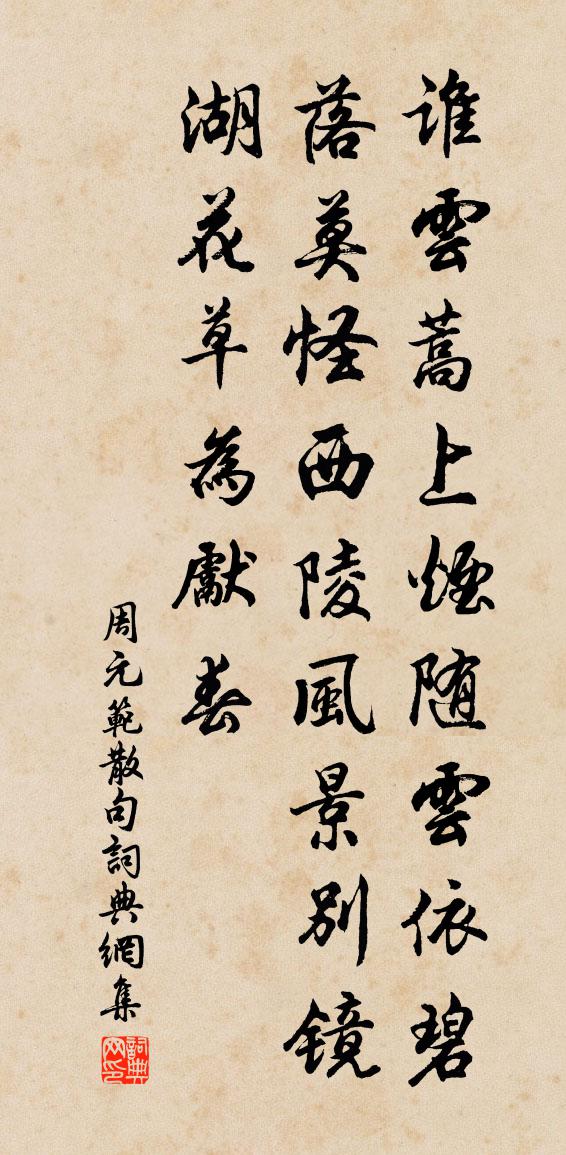 誰雲蒿上煙随雲依碧
落莫怪西陵風景别鏡
湖花草為獻春
周元範散句詞典網集
詞典网印